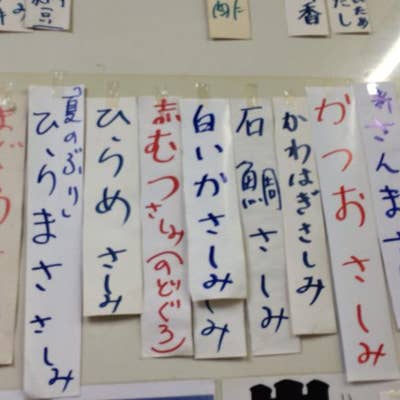 新さんまさ
かつおさしみ
かわはぎさしみ
石鯛さしみ
白いかさしみ
赤むつさしみ(のどぐろ)
ひらめさしみ
「夏のぶり」
ひらまささしみ
まぐろ